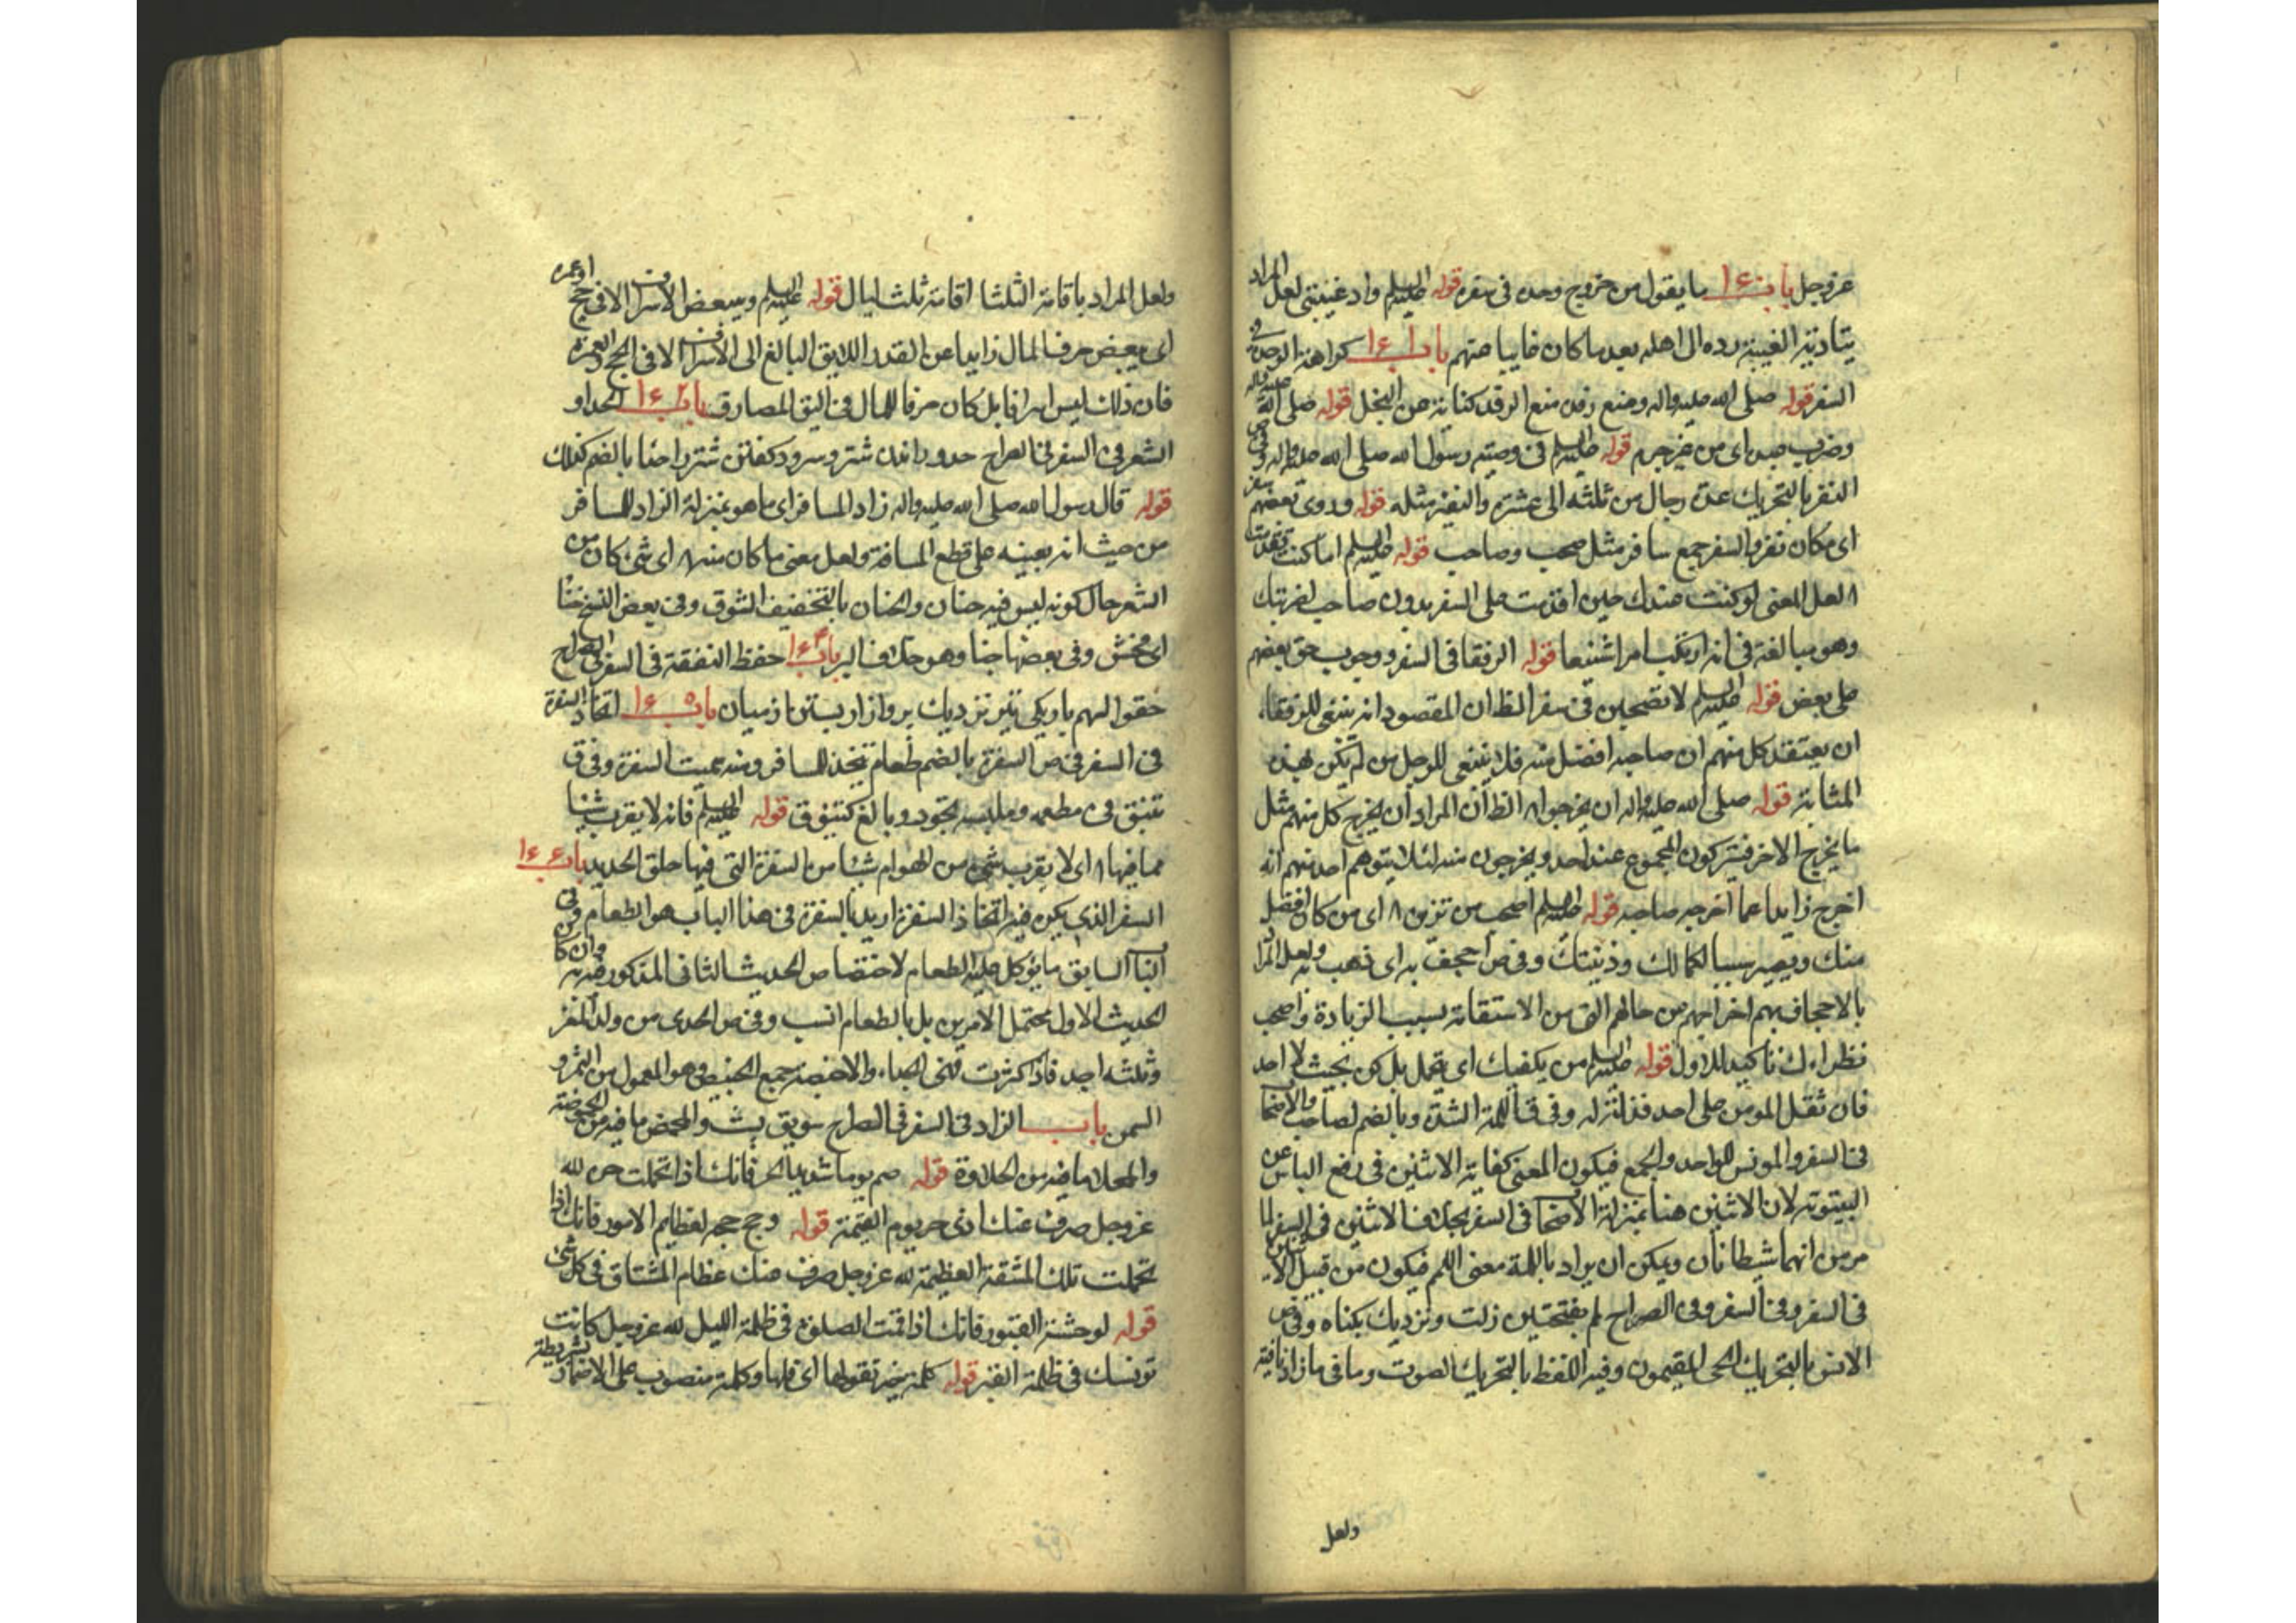 عزوجل باب ١٤٠ ما يقول من خروج وحده فى سفره قوله عليه السلم واد غيبتى لعل المراد
بتادية الغيبة رده الى اهله بعد ما كان غايبا عنهم باب ١٤١ كراهة الوحدة فى
السفر قوله صلى الله عليه واله ومنع رفده منع الرفد كناية عن البخل قوله صلى الله عليه واله
وضرب عبده اى من غير جرم قوله عليه السلم فى وصية رسول الله صلى الله عليه واله
النفر بالتحريك عدة رجال من ثلثه الى عشرة والنفير مثله قوله وروى بعضهم سفر
اى مكان نفر والسفر جمع سافر مثل صحب وصاحب قوله عليه السلم اما كنت
لعل المعنى لو كنت عندك حين اقدمت على السفر بدون صاحب لضربتك
وهو مبالغة فى انه ارتكب امرا شنيعا قوله الرفقا فى السفر ووجوب حق بعضهم
على بعض قوله عليه السلم لا تصحبن فى سفر الظ ان المقصود انه ينبغى للرفقاء
ان يعتقد كل منهم ان صاحبه افضل منه فلا ينبغى للرجل من لم يكن بهذه
المثابة قوله صلى الله عليه واله ان يخرجوا الظ ان المراد ان يخرج كل منهم مثل
ما يخرج الاخر فيتركون المجموع عند احد ويخرجون منه لئلا يتوهم احد منهم انه
اخرج زايدا عما اخرجه صاحبه قوله عليه السلم اصحب من تتزين اى من كان افضل
منك ويصير سببا لكمالك وزينتك وفى ص اجحف به اى ذهب به ولعل المراد
بالاجحاف بهم اخراجهم من حالهم التى من الاستقامة بسبب الزيادة واصحب
نظراءك تاكيد للاول قوله عليه السلم من يكفيك اى تحمل بل كن بحيث لا احد
فان ثقل المومن على احد فذلة له وفى ق اللمة الشدة وبالضم لصاحب والاصحاب
فى السفر والمونس للواحد والجمع فيكون المعنى كفاية الاثنين فى رفع الباس عن
البيتوتة لان الاثنين هنا بمنزلة الاصحا فى السفر بخلاف الاثنين فى السفر لما
مر من انهما شيطانان ويمكن ان يراد باللمة معنى اللمم فيكون من قبيل
فى السفر وفى السفر وفى الصراح لم بفتحتين زلت ونزديك بكناه وفى ص
الانس بالتحريك الحى المقيمون وفيه اللغط بالتحريك الصوت وما فى ما زاد نافية
ولعل
ولعل المراد باقامة الثلثا اقامة ثلث ليال قوله عليه السلم ويبغض الاسراف الا فى حج او عمرة
اى يبغض صرف المال زايدا عن القدر اللايق البالغ الى الاسراف الا فى الحج والعمرة
فان ذلك ليس اسرافا بل كان صرفا للمال فى اليق المصارف باب ١٤٢ الحداو
الشعر فى السفر فى الصراح حدو راندن شتر وسرود كفتن شتر را حدا بالضم كذلك
قوله قال رسول الله صلى الله عليه واله زاد المسافر اى ما هو بمنزلة الزاد للمسافر
من حيث انه يعينه على قطع المسافة ولعل معنى ما كان منه اى شى كان من
الشعر حال كونه ليس فيه حنان والحنان بالتخفيف الشوق وفى بعض النسخ خنا
اى فحش وفى بعضها جنا وهو خلاف البر باب ١٤٣ حفظ النفقة فى السفر فى الصراح
حقو السهم باريكى تير نزديك پر وازار بستن از ميان باب ١٤٥ اتخاذ السفرة
فى السفر فى ص السفرة بالضم طعام يتخذ للمسافر ومنه سميت السفرة وفى ق
تنيق فى مطعمه وملبسه تجود وبالغ كتنوق قوله عليه السلم فانه لا يقرب شيئا
مما فيها اى لا يقرب شى من الهوام شيئا من السفرة التى فيها حلق الحديد باب ١٤٤
السفر الذى يكره فيه اتخاذ السفرة اريد بالسفرة فى هذا الباب هو الطعام وفى
الباب السابق ما يؤكل عليه الطعام لاختصاص الحديث الثانى المذكور فيه به وان كا
الحديث الاول محتمل الامرين بل بالطعام انسب وفى ص الجدى من ولد المعز
وثلثه اجد فاذا كثرت فهى الجداء والاخبصة جمع الخبيص وهو المعمول من التمر و
السمن باب الزاد فى السفر فى الصراح سويق پست والمحمض ما فيه من الحموضة
والمحلا ما فيه من الحلاوة قوله صم يوما شديد الحر فانك اذا تحملت حره لله
عزوجل صرف عنك اذى حر يوم القيمة قوله وحج حجة لعظايم الامور فانك اذا
تحملت تلك المشقة العظيمة لله عزوجل صرف عنك عظام المشتاق فى كل شى
قوله لوحشة القبور فانك اذا قمت الصلوة فى ظلمة الليل لله عزوجل كانت
تونسك فى ظلمة القبر قوله كلمة خير تقولها اى قلها وكلمة منصوب على الاضمار بشريطة